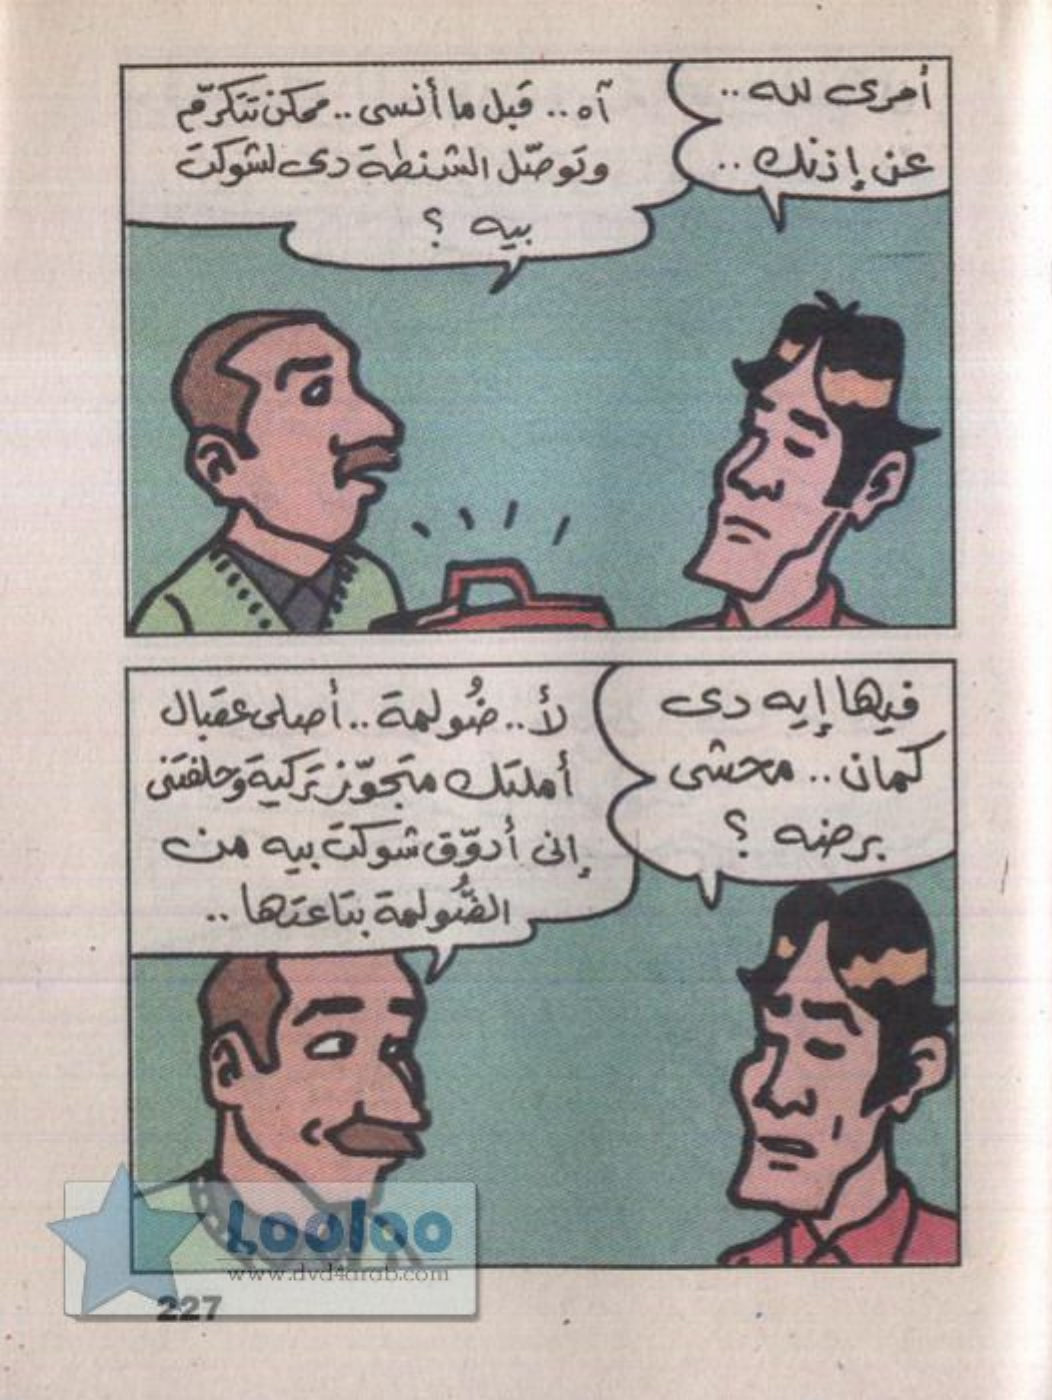 أمرى لله ..
عن إذنك ..
آه .. قبل ما أنسى .. ممكن تتكرّم
وتوصّل الشنطة دى لشوكت
بيه ؟
فيها إيه دى
كمان .. محشى
برضه ؟
لأ .. ضُولمة .. أصلى عقبال
أملتك متجوّز تركية وحلفتنى
إنى أدوّق شوكت بيه من
الضُّولمة بتاعتها ..
Looloo
www.dvd4arab.com
227